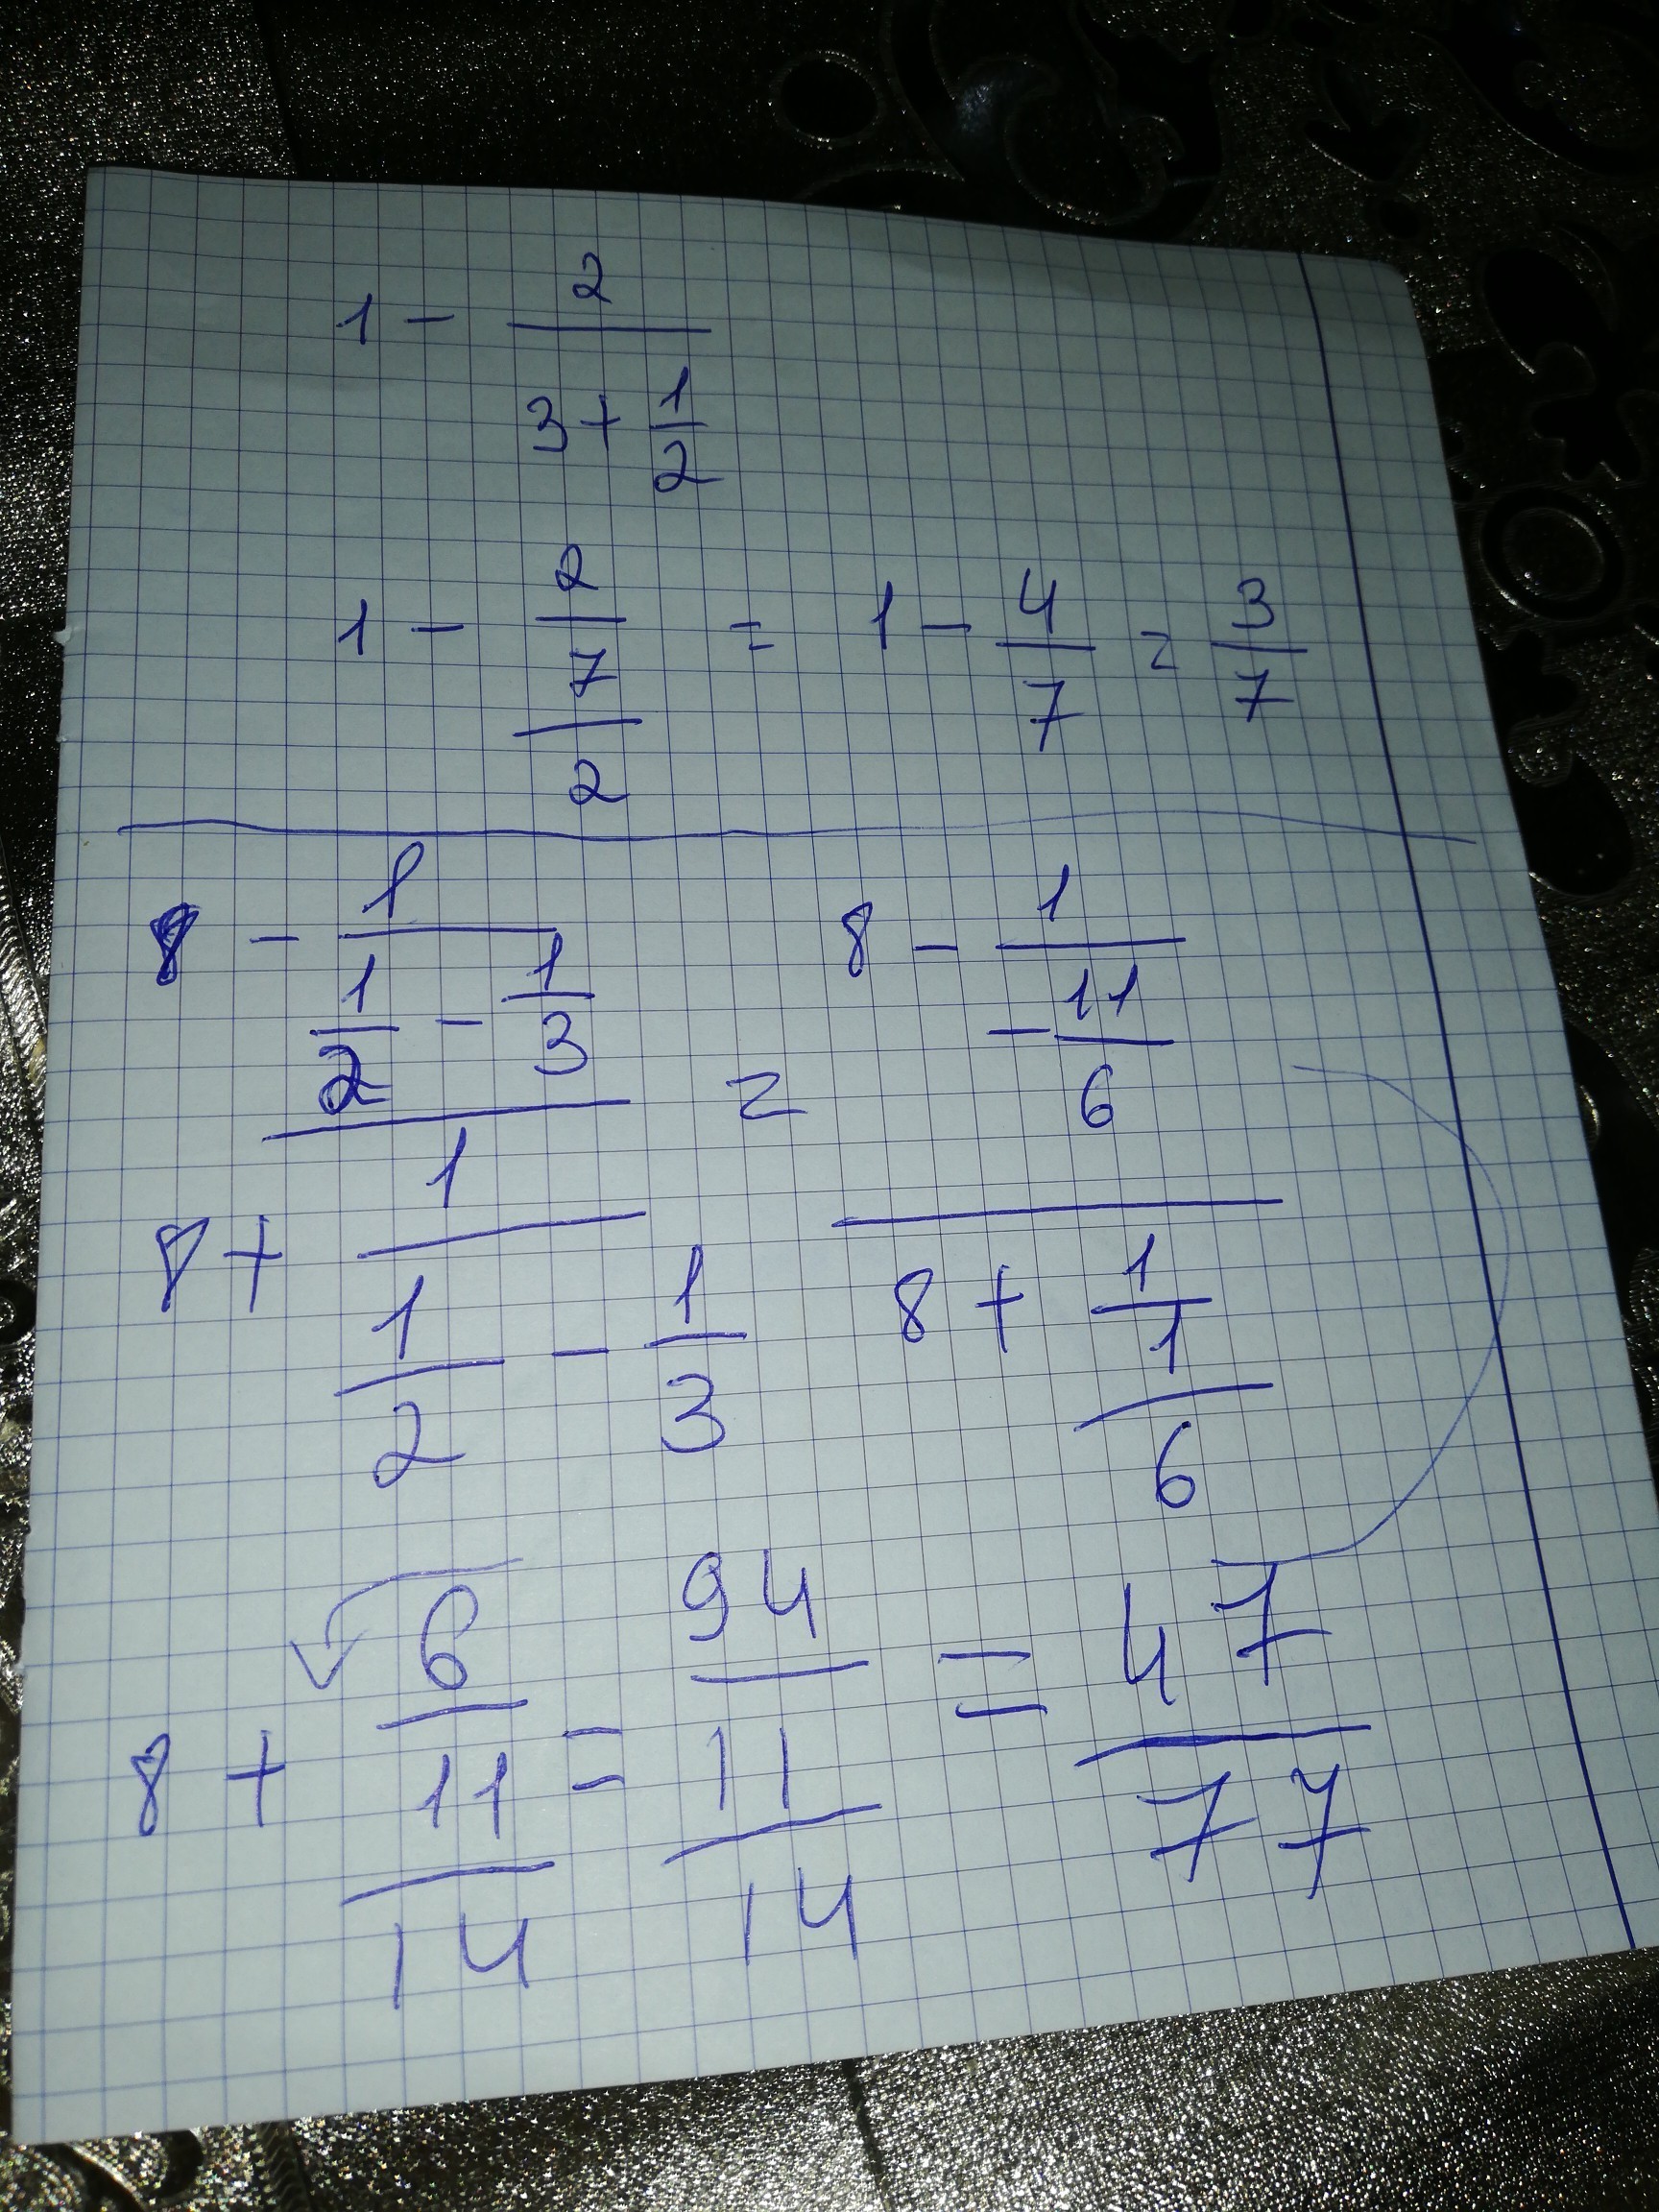 1 - 2
3 + 1/2
1 - 2/7/2 = 1 - 4/7 = 3/7
8 - 1/(1/2 - 1/3) = 8 - 1/(-11/6)
8 + 1/(1/2 - 1/3) 8 + 1/1/6
8 + 6/11/14 = 94/11/14 = 47/77